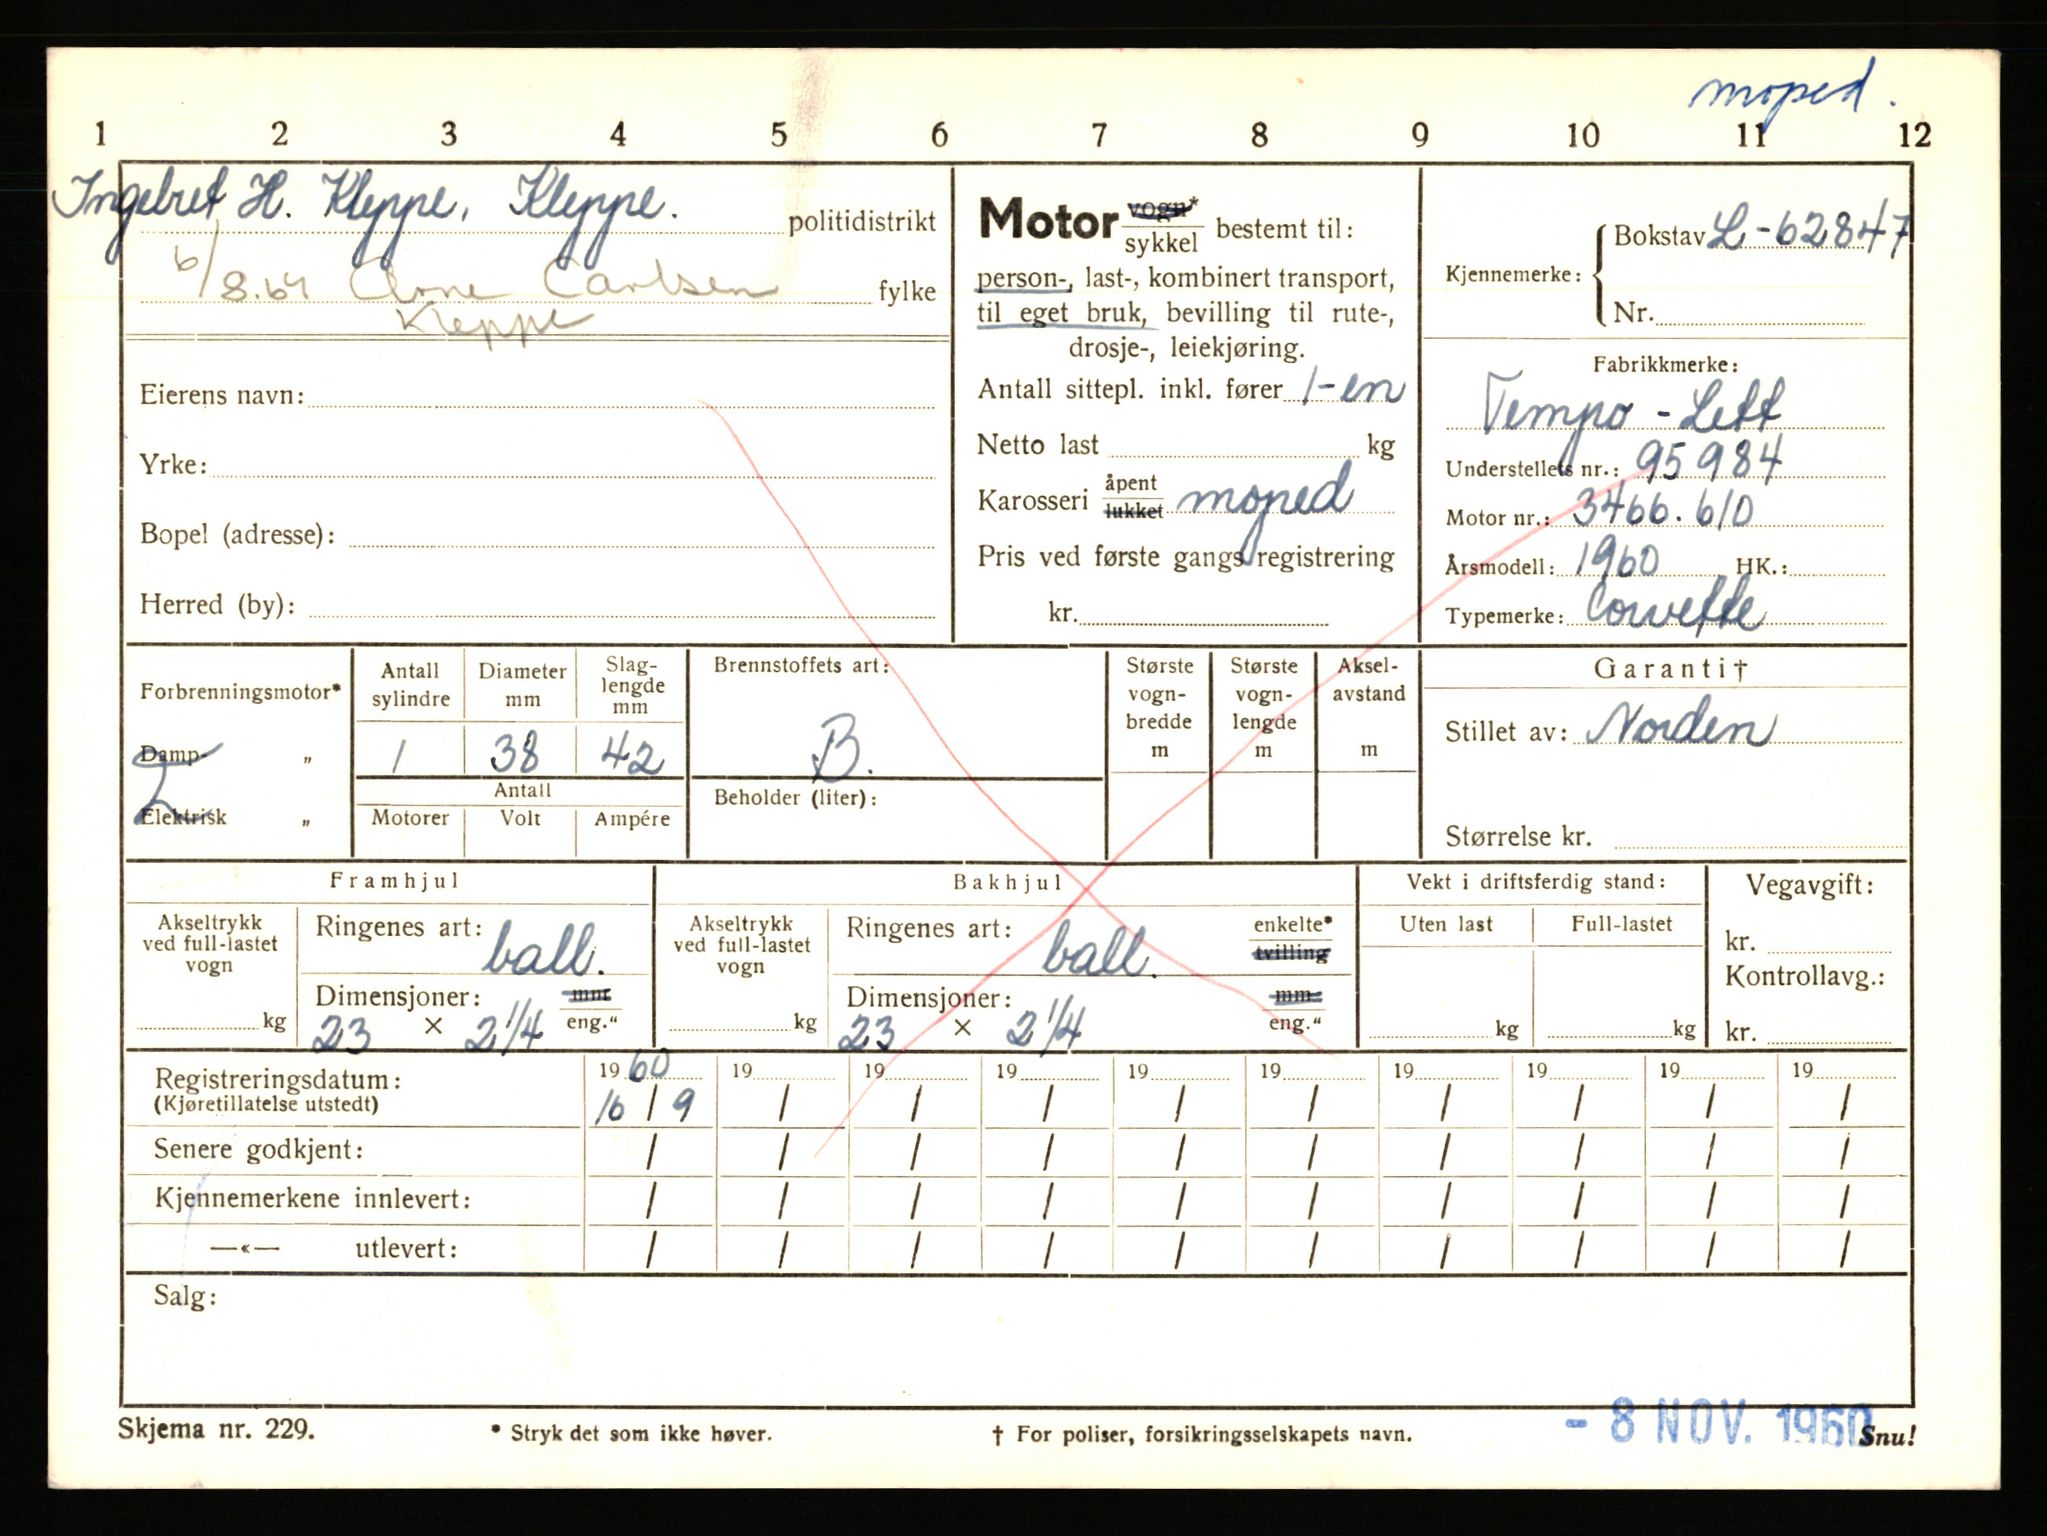 moped.
1 2 3 4 5 6 7 8 9 10 11 12
Ingebret H. Kleppe, Kleppe. politidistrikt
6/8.64 Arne Carlsen fylke
Kleppe
Eierens navn:
Yrke:
Bopel (adresse):
Herred (by):
Motor vogn* sykkel bestemt til:
person-, last-, kombinert transport,
til eget bruk, bevilling til rute-,
drosje-, leiekjøring.
Antall sittepl. inkl. fører 1-en
Netto last kg
Karosseri åpent lukket moped
Pris ved første gangs registrering
kr.
Kjennemerke: Bokstav L-62847
Nr.
Fabrikkmerke:
Tempo - Lett
Understellets nr.: 95984
Motor nr.: 3466.610
Årsmodell: 1960 HK.:
Typemerke: Corvette
Forbrenningsmotor*
Damp- „
Elektrisk „
Antall sylindre
Diameter mm
Slag-lengde mm
1 38 42
Antall
Motorer Volt Ampére
Brennstoffets art:
B.
Beholder (liter):
Største vogn-bredde m
Største vogn-lengde m
Aksel-avstand m
Garanti†
Stillet av: Norden
Størrelse kr.
Framhjul
Akseltrykk ved full-lastet vogn
kg
Ringenes art: ball.
Dimensjoner: mm eng."
23 × 2 1/4
Bakhjul
Akseltrykk ved full-lastet vogn
kg
Ringenes art: ball. enkelte* tvilling
Dimensjoner: mm eng."
23 × 2 1/4
Vekt i driftsferdig stand:
Uten last Full-lastet
kg kg
Vegavgift:
kr.
Kontrollavg.:
kr.
Registreringsdatum: 1960 19 19 19 19 19 19 19 19 19
(Kjøretillatelse utstedt) 16/9 / / / / / / / / /
Senere godkjent: / / / / / / / / / /
Kjennemerkene innlevert: / / / / / / / / / /
—«— utlevert: / / / / / / / / / /
Salg:
Skjema nr. 229. * Stryk det som ikke høver. † For poliser, forsikringsselskapets navn. - 8 NOV. 1960 Snu!